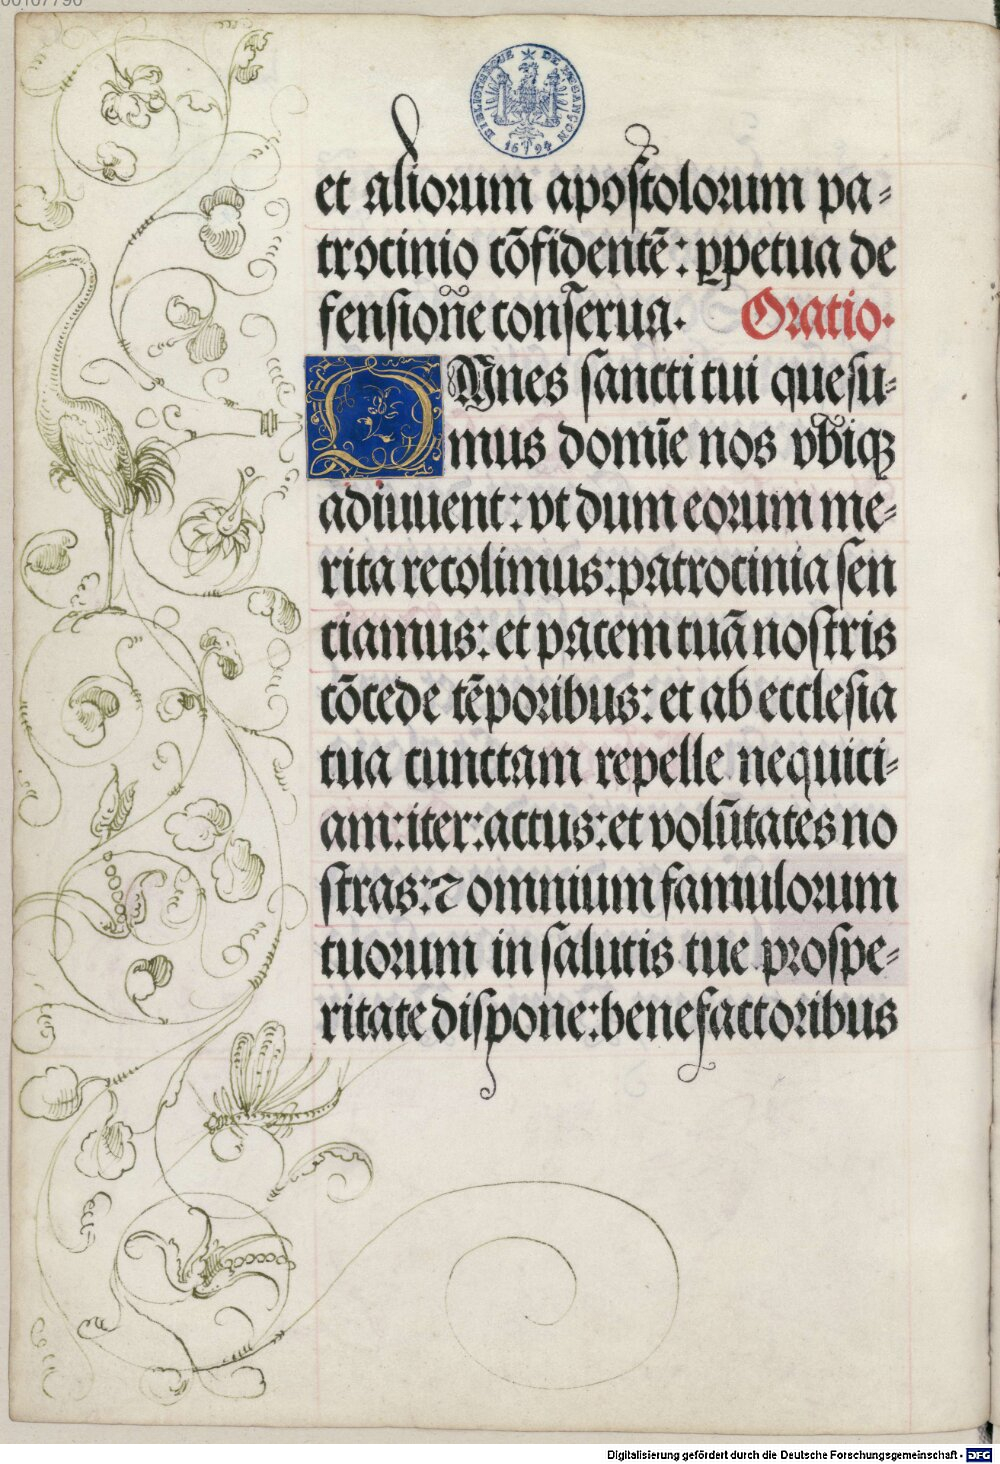 00107790
BIBLIOTHEQUE DE BESANÇON
1694
et aliorum apostolorum pa⸗
trocinio cōfidentē: ꝑpetua de
fensione conserua. Oratio.
OMnes sancti tui quesu⸗
mus domīe nos vbiqꝫ
adiuuent: vt dum eorum me⸗
rita recolimus: patrocinia sen
ciamus: et pacem tuā nostris
cōcede tēporibus: et ab ecclesia
tua cunctam repelle nequici⸗
am: iter: actus: et volūtates no
stras: ⁊ omnium famulorum
tuorum in salutis tue prospe⸗
ritate dispone: benefactoribus
Digitalisierung gefördert durch die Deutsche Forschungsgemeinschaft - DFG